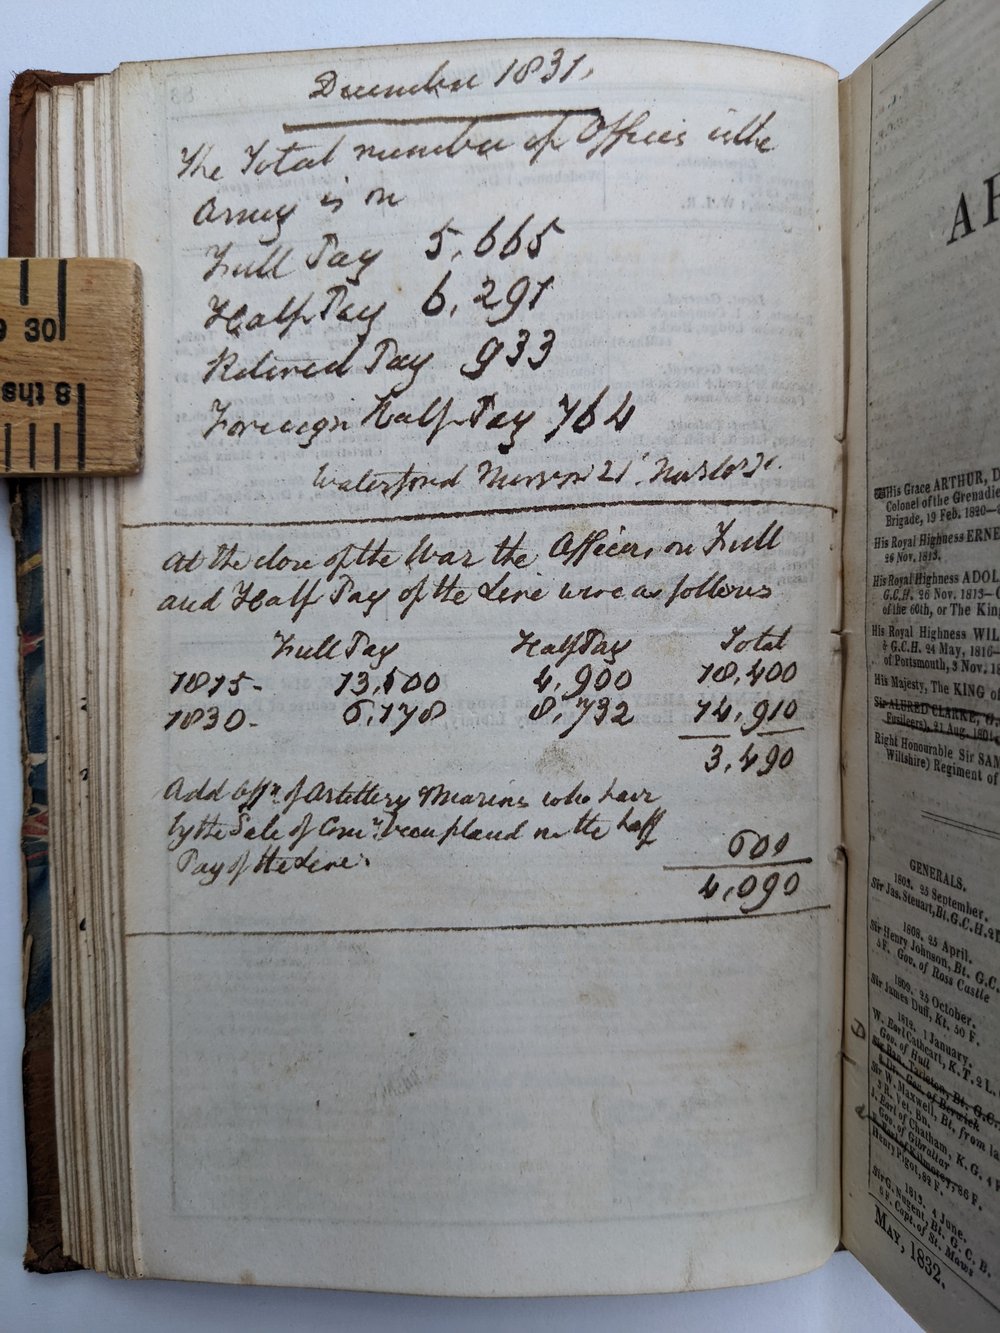 December 1831.
The Total number of Officers in the
Army is on
Full Pay 5,665
Half Pay 6,291
Retired Pay 933
Foreign Half Pay 764
Waterford Mirror 21
At the close of the War the Officers on Full
and Half Pay of the Line were as follows
Full Pay Half Pay Total
1815 - 13,500 4,900 18,400
1830 - 6,178 8,732 14,910
3,490
Add Offrs of Artillery & Marines who have
by the Sale of Comns been placed on the half
Pay of the Line.
600
4,090
30
8 ths
His Grace ARTHUR, D
Colonel of the Grenadie
Brigade, 19 Feb. 1820—
His Royal Highness ERNE
26 Nov. 1813.
His Royal Highness ADOL
G.C.H. 26 Nov. 1813—
of the 60th, or The King
His Royal Highness WIL
& G.C.H. 24 May, 1816—
of Portsmouth, 3 Nov. 18
His Majesty, The KING o
Sir ALURED CLARKE, G.
Fusileers), 21 Aug. 1801
Right Honourable Sir SAM
Wiltshire) Regiment of
GENERALS.
1803. 25 September.
Sir Jas. Steuart, Bt. G.C.H. 2 D
1808. 25 April.
Sir Henry Johnson, Bt. G.C.
5 F. Gov. of Ross Castle
1809. 25 October.
Sir James Duff, Kt. 50 F.
1812. 1 January.
W. Earl Cathcart, K.T. 2 L.
Gov. of Hull
D
Sir Ban. Tarleton, Bt. G.C.
Gov. of Berwick
Sir W. Maxwell, Bt. from la
3 R. Vet. Bn.
J. Earl of Chatham, K.G. 4 F
Gov. of Gibraltar
of Kilmorey, 86 F.
Henry Pigot, 82 F.
1813. 4 June.
Sir G. Nugent, Bt. G. C. B.
6 F. Capt. of St. Maws
MAY, 1832.